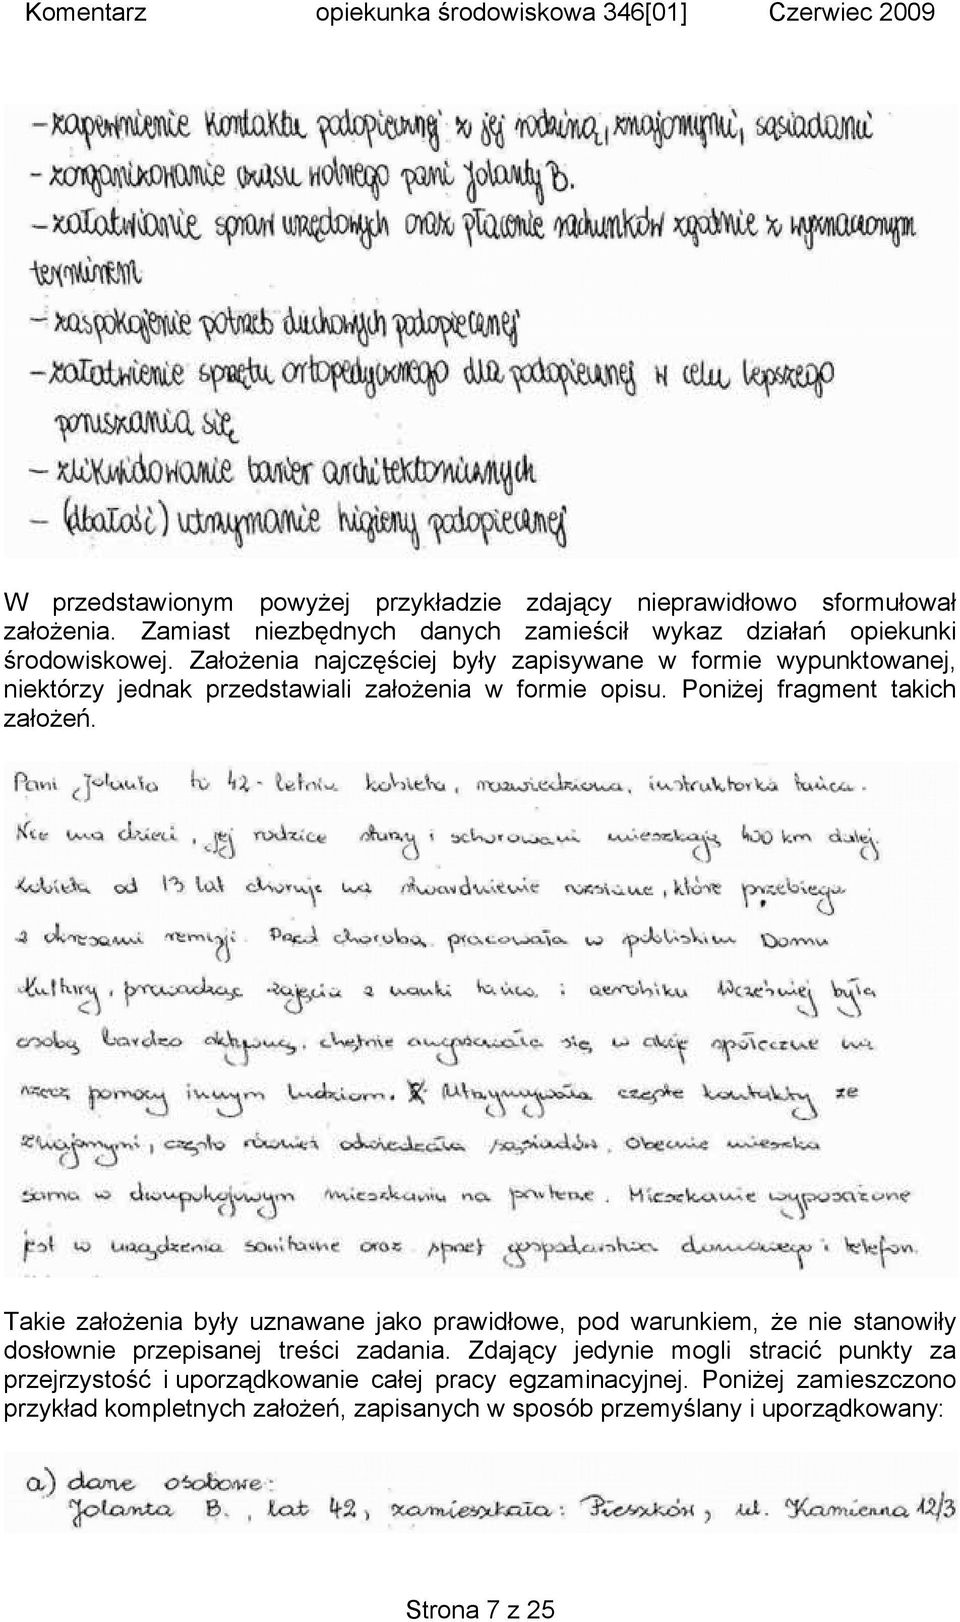 Komentarz opiekunka środowiskowa 346[01] Czerwiec 2009
- zapewnienie kontaktu podopiecznej z jej rodziną, znajomymi, sąsiadami
- zorganizowanie czasu wolnego pani Jolanty B.
- załatwianie spraw urzędowych oraz płacenie rachunków zgodnie z wyznaczonym
terminem
- zaspokojenie potrzeb duchowych podopiecznej
- załatwienie sprzętu ortopedycznego dla podopiecznej w celu lepszego
poruszania się
- zlikwidowanie barier architektonicznych
- (dbałość) utrzymanie higieny podopiecznej
W przedstawionym powyżej przykładzie zdający nieprawidłowo sformułował
założenia. Zamiast niezbędnych danych zamieścił wykaz działań opiekunki
środowiskowej. Założenia najczęściej były zapisywane w formie wypunktowanej,
niektórzy jednak przedstawiali założenia w formie opisu. Poniżej fragment takich
założeń.
Pani Jolanta to 42-letnia kobieta, rozwiedziona, instruktorka tańca.
Nie ma dzieci, jej rodzice starzy i schorowani mieszkają 400 km dalej.
Kobieta od 13 lat choruje na stwardnienie rozsiane, które przebiega
z okresami remisji. Przed chorobą pracowała w pobliskim Domu
Kultury, prowadząc zajęcia z nauki tańca i aerobiku Wcześniej była
osobą bardzo aktywną, chętnie angażowała się w akcje społeczne na
rzecz pomocy innym ludziom. Utrzymywała częste kontakty ze
znajomymi, często również odwiedzała sąsiadów. Obecnie mieszka
sama w dwupokojowym mieszkaniu na parterze. Mieszkanie wyposażone
jest w urządzenia sanitarne oraz sprzęt gospodarstwa domowego i telefon.
Takie założenia były uznawane jako prawidłowe, pod warunkiem, że nie stanowiły
dosłownie przepisanej treści zadania. Zdający jedynie mogli stracić punkty za
przejrzystość i uporządkowanie całej pracy egzaminacyjnej. Poniżej zamieszczono
przykład kompletnych założeń, zapisanych w sposób przemyślany i uporządkowany:
a) dane osobowe:
Jolanta B., lat 42, zamieszkała: Pieszków, ul. Kamienna 12/3
Strona 7 z 25